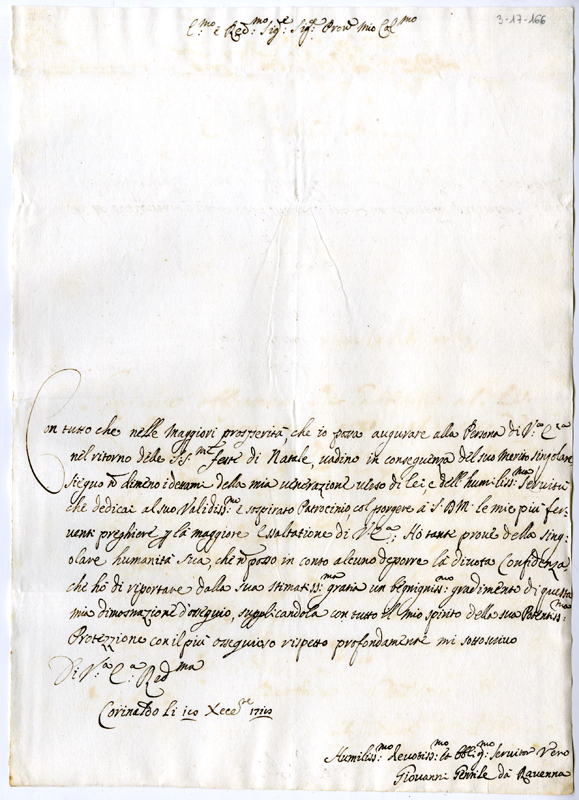 3-17-166
E.mo e Red.mo Sig.e Sig.e Prone Mio Col.mo
Con tutto che nelle Maggiori prosperità, che io possa augurare alla Persona di V.a E.za
nel ritorno delle SS.me feste di Natale, vadino in conseguenza del suo Merito singolare
Sieguo ñ dimeno i dettami della mia veneratione verso di lei, e dell'humiliss:ma servitù
che dedicai al suo Validiss:mo e sospirato Patrocinio col porgere à S. D. M. le mie più fer-
venti preghiere la maggiore Essaltatione di V. E.a; Ho tante prove della sing-
olare humanità Sua, che ñ posso in conto alcuno deporre la divota Confidenza
che hò di riportare dalla sua stimatiss:ma gratia un benigniss:mo gradimento di questa
mia dimostrazione d'ossequio, supplicandola con tutto il mio spirito della sua Potentiss:ma
Protezione con il più ossequioso rispetto profondamente mi sottoscrivo
Di V.a E.a Red.ma
Corinaldo li
Humiliss:mo devotiss:mo et obblig.mo servitor Vero
Giovanni Gentile da Ravenna